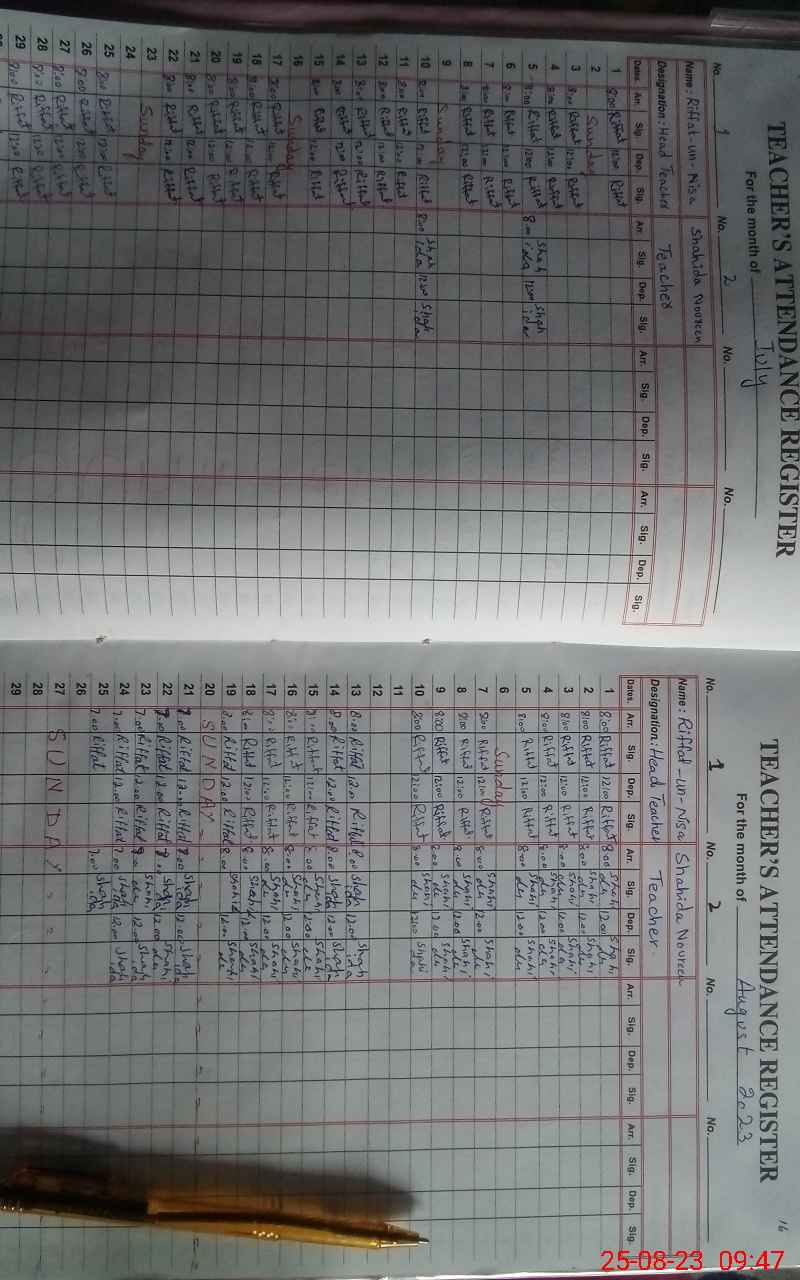 TEACHER'S ATTENDANCE REGISTER
For the month of July
No. 1 No. 2 No. No.
Name: Riffat-un-Nisa Shahida Noureen
Designation: Head Teacher Teacher
Dates. Arr. Sig. Dep. Sig. Arr. Sig. Dep. Sig. Arr. Sig. Dep. Sig. Arr. Sig. Dep. Sig.
1 8:00 Riffat 12:00 Riffat
2 Sunday
3 8:00 Riffat 12:00 Riffat
4 8:00 Riffat 12:00 Riffat
5 8:00 Riffat 12:00 Riffat 8:00 Shahida 12:00 Shahida
6 8:00 Riffat 12:00 Riffat
7 8:00 Riffat 12:00 Riffat
8 8:00 Riffat 12:00 Riffat
9 Sunday
10 8:00 Riffat 12:00 Riffat 8:00 Shahida 12:00 Shahida
11 8:00 Riffat 12:00 Riffat
12 8:00 Riffat 12:00 Riffat
13 8:00 Riffat 12:00 Riffat
14 8:00 Riffat 12:00 Riffat
15 8:00 Riffat 12:00 Riffat
16 Sunday
17 8:00 Riffat 12:00 Riffat
18 8:00 Riffat 12:00 Riffat
19 8:00 Riffat 12:00 Riffat
20 8:00 Riffat 12:00 Riffat
21 8:00 Riffat 12:00 Riffat
22 8:00 Riffat 12:00 Riffat
23 Sunday
24
25 8:00 Riffat 12:00 Riffat
26 8:00 Riffat 12:00 Riffat
27 8:00 Riffat 12:00 Riffat
28 8:00 Riffat 12:00 Riffat
29 8:00 Riffat 12:00 Riffat
16
TEACHER'S ATTENDANCE REGISTER
For the month of August 2023
No. 1 No. 2 No. No.
Name: Riffat-un-Nisa Shahida Noureen
Designation: Head Teacher Teacher
Dates. Arr. Sig. Dep. Sig. Arr. Sig. Dep. Sig. Arr. Sig. Dep. Sig. Arr. Sig. Dep. Sig.
1 8:00 Riffat 12:00 Riffat 8:00 Shahida 12:00 Shahida
2 8:00 Riffat 12:00 Riffat 8:00 Shahida 12:00 Shahida
3 8:00 Riffat 12:00 Riffat 8:00 Shahida 12:00 Shahida
4 8:00 Riffat 12:00 Riffat 8:00 Shahida 12:00 Shahida
5 8:00 Riffat 12:00 Riffat 8:00 Shahida 12:00 Shahida
6 Sunday
7 8:00 Riffat 12:00 Riffat 8:00 Shahida 12:00 Shahida
8 8:00 Riffat 12:00 Riffat 8:00 Shahida 12:00 Shahida
9 8:00 Riffat 12:00 Riffat 8:00 Shahida 12:00 Shahida
10 8:00 Riffat 12:00 Riffat 8:00 Shahida 12:00 Shahida
11
12
13 8:00 Riffat 12:00 Riffat 8:00 Shahida 12:00 Shahida
14 8:00 Riffat 12:00 Riffat 8:00 Shahida 12:00 Shahida
15 8:00 Riffat 12:00 Riffat 8:00 Shahida 12:00 Shahida
16 8:00 Riffat 12:00 Riffat 8:00 Shahida 12:00 Shahida
17 8:00 Riffat 12:00 Riffat 8:00 Shahida 12:00 Shahida
18 8:00 Riffat 12:00 Riffat 8:00 Shahida 12:00 Shahida
19 8:00 Riffat 12:00 Riffat 8:00 Shahida 12:00 Shahida
20 SUNDAY
21 7:00 Riffat 12:00 Riffat 7:00 Shahida 12:00 Shahida
22 7:00 Riffat 12:00 Riffat 7:00 Shahida 12:00 Shahida
23 7:00 Riffat 12:00 Riffat 7:00 Shahida 12:00 Shahida
24 7:00 Riffat 12:00 Riffat 7:00 Shahida 12:00 Shahida
25 7:00 Riffat 7:00 Shahida
26
27 SUNDAY
28
29
25-08-23 09:47